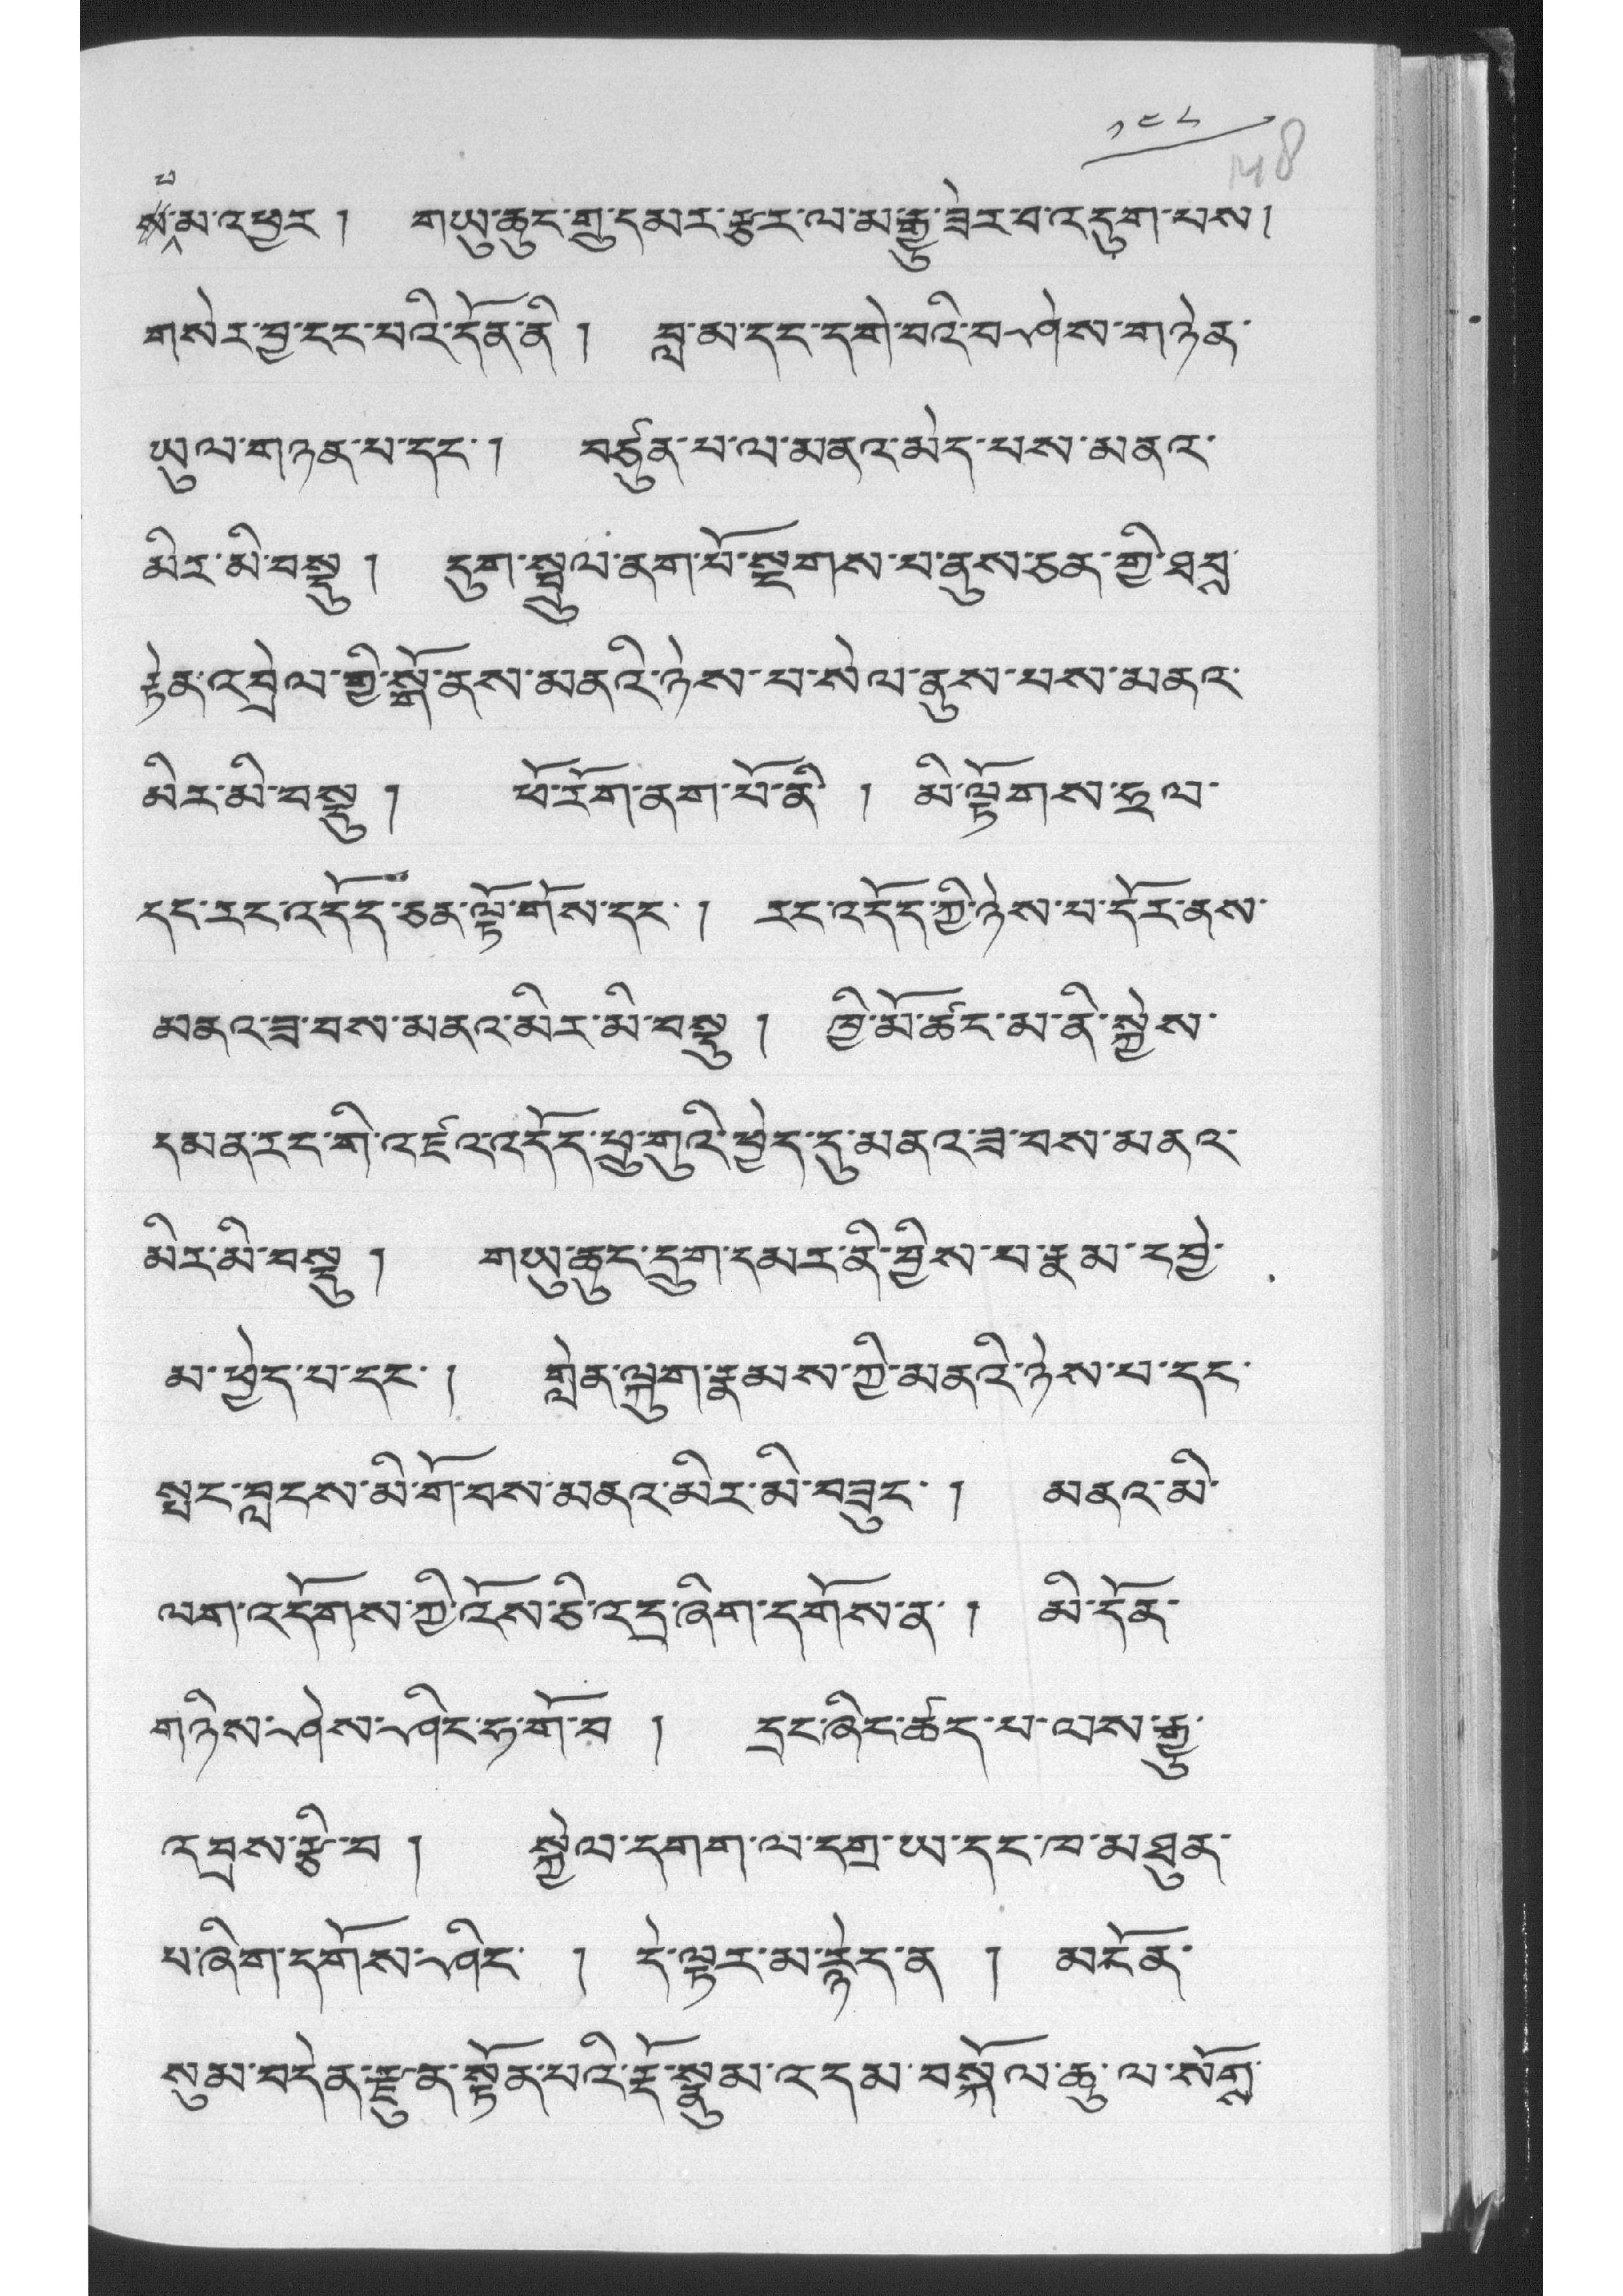 ༡༤༨
148
ས་མ་འཕྱར། གཡུ་ཆུང་གྲུ་དམར་རྩར་ལ་མ་རྒྱུ་ཟེར་བ་འདུག་པས།
གསེར་བྱ་ངང་པའི་དོན་ནི། བླ་མ་དང་དགེ་བའི་བཤེས་གཉེན་
ཡུལ་གཉན་པ་དང་། བཙུན་པ་ལ་མནའ་མེད་པས་མནའ་
མིར་མི་བསྡུ། དུག་སྦྲུལ་ནག་པོ་སྔགས་པ་ནུས་ཅན་གྱི་ཐབླ
རྟེན་འབྲེལ་གྱི་སྒོ་ནས་མནའི་ཉེས་པ་སེལ་ནུས་པས་མནའ་
མིར་མི་བསྡུ། ཕོ་རོག་ནག་པོ་ནི། མི་ལྟོགས་ཧྲལ་
དང་རང་འདོད་ཅན་ལྟོ་གོས་དང་། རང་འདོད་ཀྱི་ཉེས་པ་དོར་ནས་
མནའ་ཟ་བས་མནའ་མིར་མི་བསྡུ། ཁྱི་མོ་ཚོང་མ་ནི་སྐྱེས་
དམན་རང་གི་འཛའ་འདོད་ཕྲུ་གུའི་ཕྱེད་དུ་མནའ་ཟ་བས་མནའ་
མིར་མི་བསྡུ། གཡུ་ཆུང་དྲུག་དམར་ནི་བྱིས་པ་རྣམ་དབྱེ་
མ་ཕྱེད་པ་དང་། གླེན་ལྐུག་རྣམས་ཀྱི་མནའི་ཉེས་པ་དང་
སྤང་བླངས་མི་གོ་བས་མནའ་མིར་མི་བཟུང་། མནའ་མི་
ལག་འདོགས་ཀྱི་འོས་ཅི་འདྲ་ཞིག་དགོས་ན་། མི་དོན་
གཉིས་ཤེས་ཤིང་ཧ་གོ་བ། དྲང་ཞིང་ཚད་པ་ལས་རྒྱུ་
འབྲས་རྩི་བ། སྐྱེལ་དགག་ལ་དགྲ་ཡ་དང་ཁ་མཐུན་
པ་ཞིག་དགོས་ཤིང་། དེ་ལྟར་མ་རྙེད་ན། མངོན་
སུམ་བདེན་རྫུན་སྟོན་པའི་རྡོ་སྣུམ་འདམ་བསྐོལ་ཆུ་ལ་སོགླ